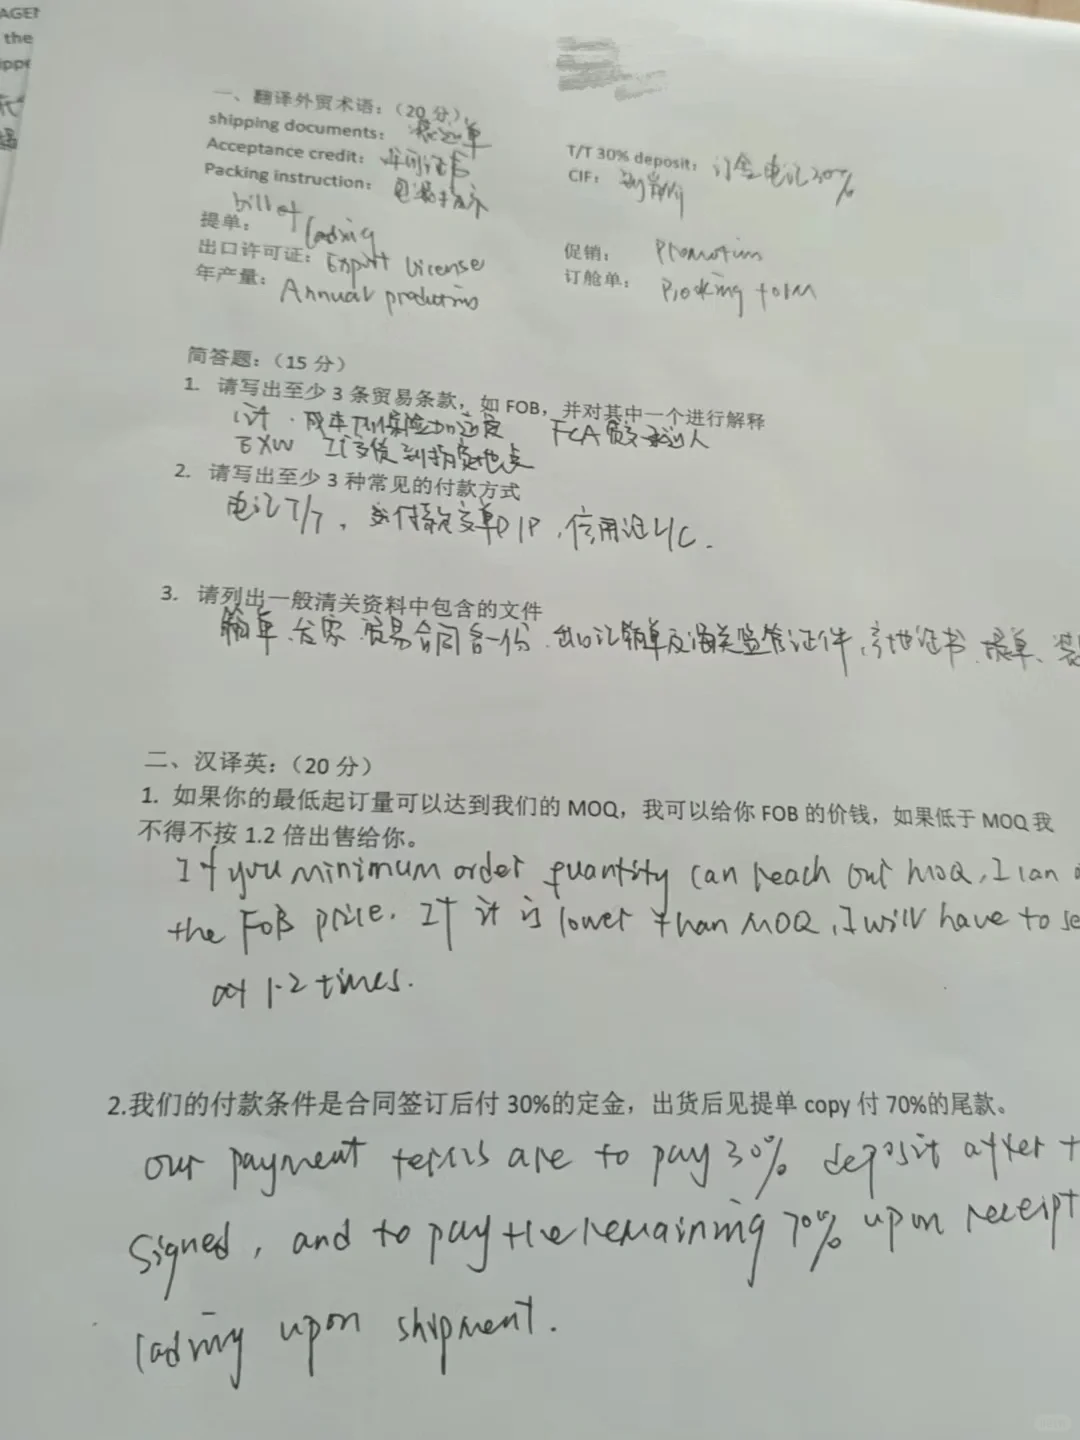 AGE
the
ippe
一、翻译外贸术语：（20 分）
shipping documents：
Acceptance credit：
Packing instruction：
T/T 30% deposit： 订金电汇30%
CIF：
提单： bill of lading
出口许可证： Export license
年产量： Annual production
促销： Promotion
订舱单： Booking form
简答题：（15 分）
1. 请写出至少 3 条贸易条款，如 FOB，并对其中一个进行解释
成本加保险加运费 FCA 货交承运人
EXW 工厂交货到指定地点
2. 请写出至少 3 种常见的付款方式
电汇T/T，付款交单D/P，信用证L/C.
3. 请列出一般清关资料中包含的文件
贸易合同各一份.出口 及海关监管证件，产地证书.
二、汉译英：（20 分）
1. 如果你的最低起订量可以达到我们的 MOQ，我可以给你 FOB 的价钱，如果低于 MOQ 我
不得不按 1.2 倍出售给你。
If you minimum order quantity can reach our MOQ, I can
the FOB price. If it is lower than MOQ, I will have to se
at 1.2 times.
2.我们的付款条件是合同签订后付 30%的定金，出货后见提单 copy 付 70%的尾款。
our payment terms are to pay 30% deposit after t
signed, and to pay the remaining 70% upon receipt
lading upon shipment.